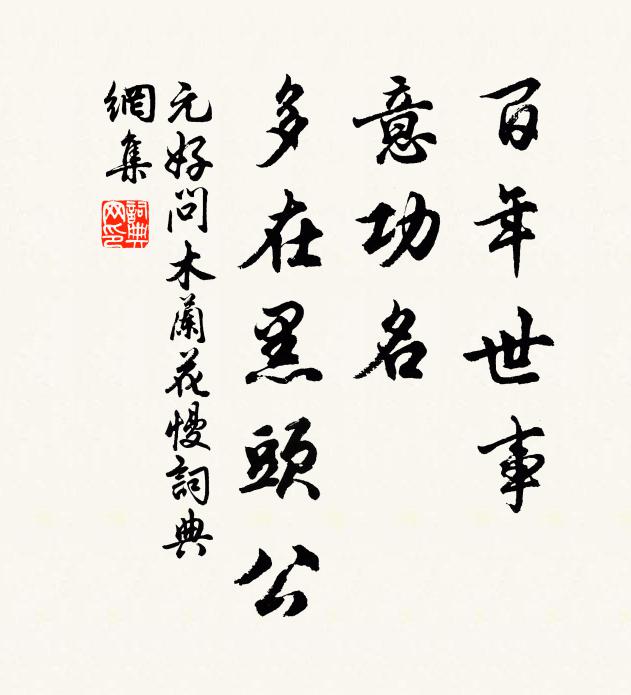 百年世事
意功名
多在黑頭公
元好問木蘭花慢詞典
網集
詞典
网印